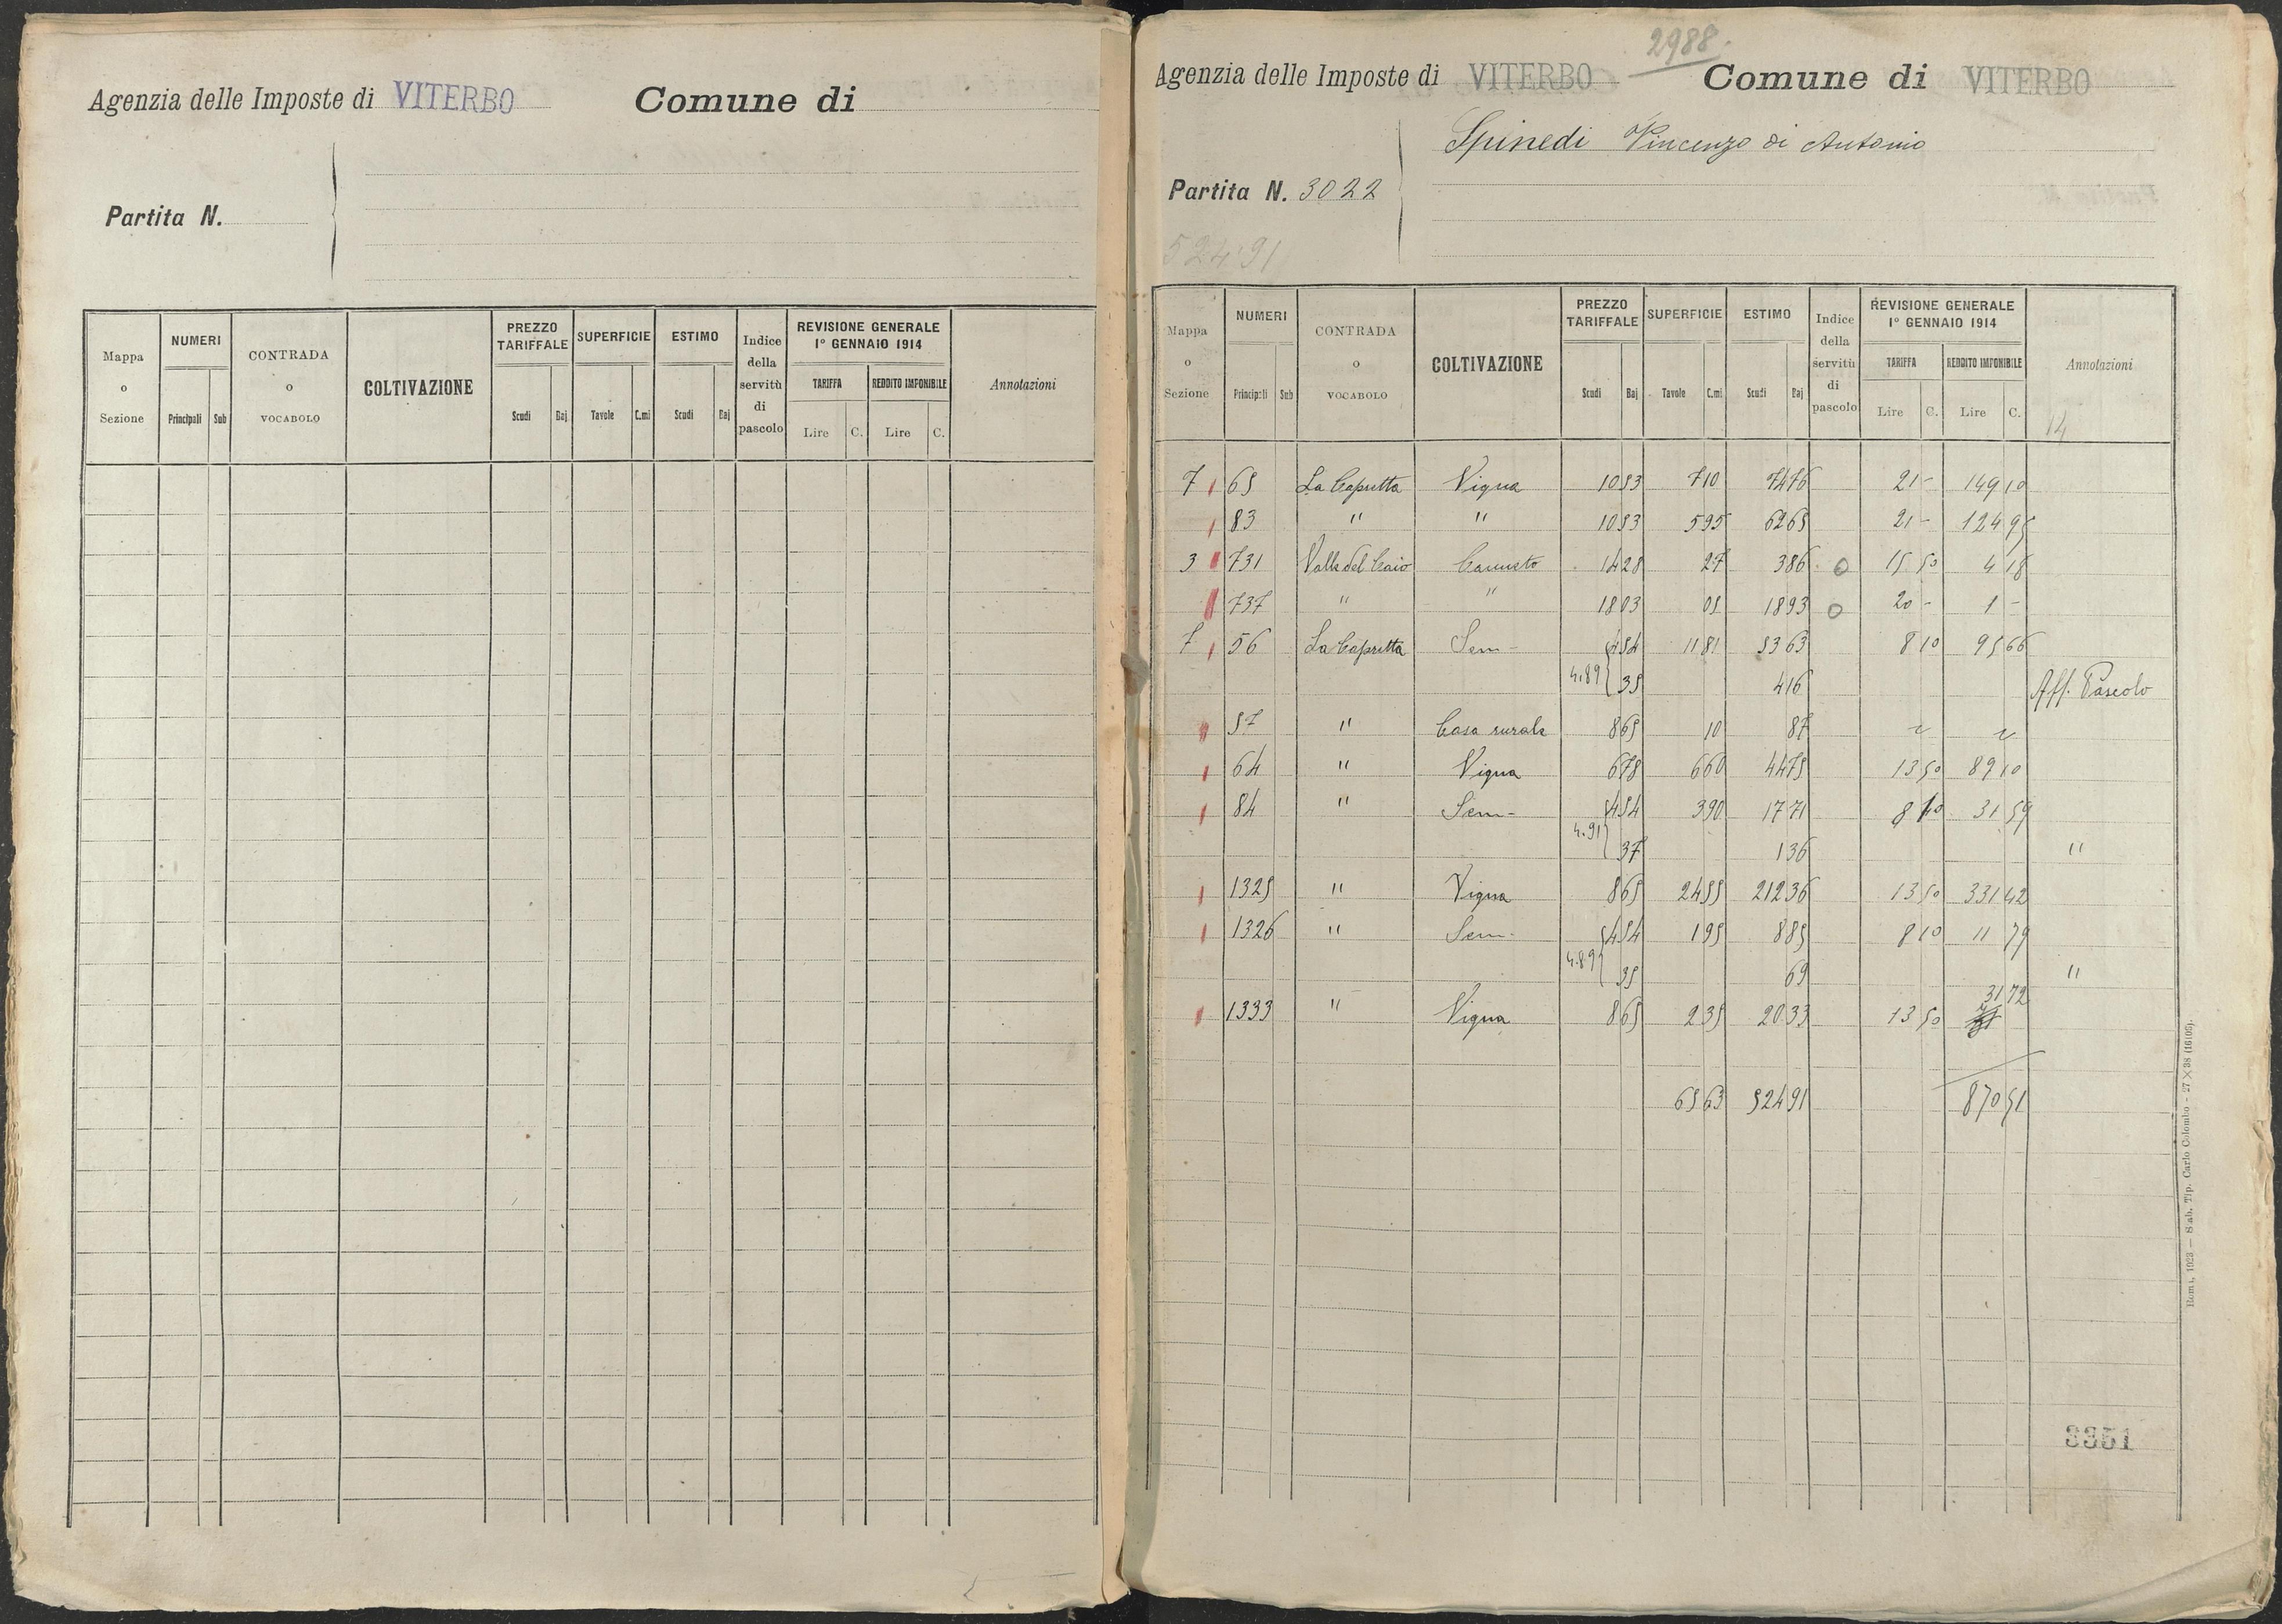 Agenzia delle Imposte di VITERBO Comune di
Partita N.
Mappa o Sezione
NUMERI
Principali Sub
CONTRADA o VOCABOLO
COLTIVAZIONE
PREZZO TARIFFALE
Scudi Baj
SUPERFICIE
Tavole C.mi
ESTIMO
Scudi Baj
Indice della servitù di pascolo
REVISIONE GENERALE 1° GENNAIO 1914
TARIFFA REDDITO IMPONIBILE
Lire C. Lire C.
Annotazioni
2988.
Agenzia delle Imposte di VITERBO Comune di VITERBO
Spinedi Vincenzo di Antonio
Partita N. 3022
524.91
Mappa o Sezione
NUMERI
Principali Sub
CONTRADA o VOCABOLO
COLTIVAZIONE
PREZZO TARIFFALE
Scudi Baj
SUPERFICIE
Tavole C.mi
ESTIMO
Scudi Baj
Indice della servitù di pascolo
REVISIONE GENERALE 1° GENNAIO 1914
TARIFFA REDDITO IMPONIBILE
Lire C. Lire C.
Annotazioni
14
7 65 La Capretta Vigna 10 53 7 10 74 76 21 - 149 10
83 " " 10 53 5 95 62 65 21 - 124 95
3 731 Valle del Caio Canneto 14 28 27 3 86 0 15 50 4 18
737 " " 18 03 05 1893 0 20 - 1 -
7 56 La Capretta Sem- 4 54 11 81 53 63 8 10 95 66
4.89 35 4 16 Aff. Pascolo
57 " Casa rurale 8 65 10 87
64 " Vigna 6 78 6 60 44 75 13 50 89 10
84 " Sem- 4 54 3 90 17 71 8 10 31 59
4.91 37 1 36 "
1325 " Vigna 8 65 24 55 212 36 13 50 331 42
1326 " Sem- 4 54 1 95 8 85 8 10 11 79
4.89 35 69 "
1333 " Vigna 8 65 2 35 20 33 13 50 31 72
65 63 524 91 870 51
3351
Roma, 1923 — Stab. Tip. Carlo Colombo - 27 × 38 (16106).